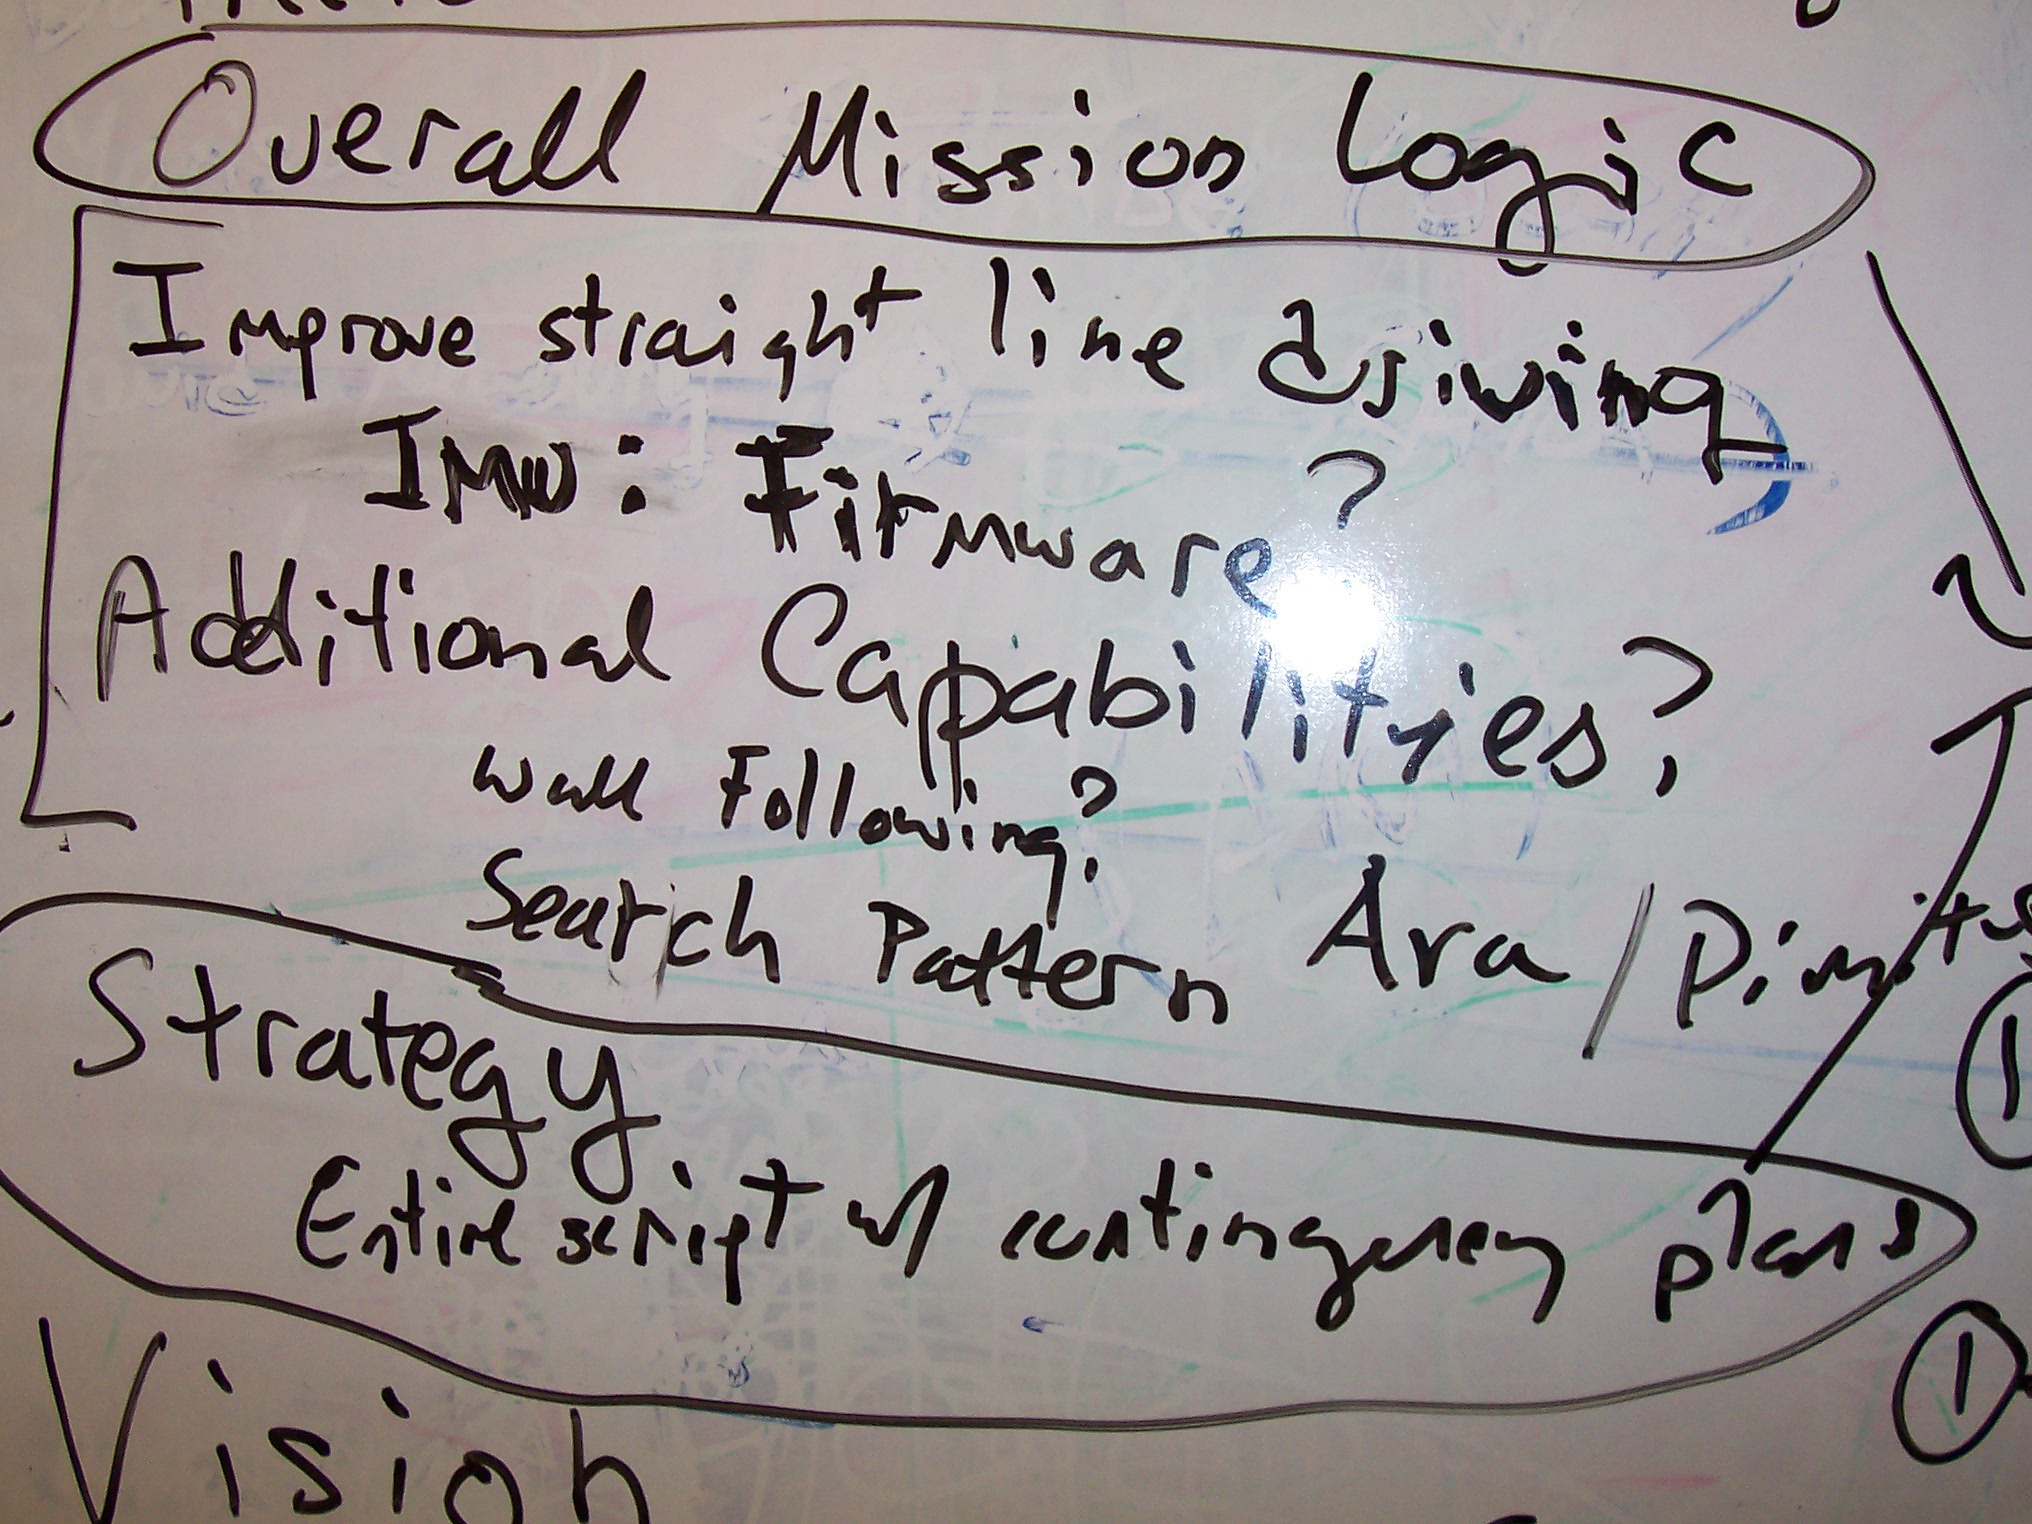 Overall Mission Logic
Improve straight line driving
IMU: Firmware?
Additional Capabilities?
Wall Following?
Search Pattern Ara / Dimitus
Strategy
Entire script w/ contingency plans
1
1
Vision